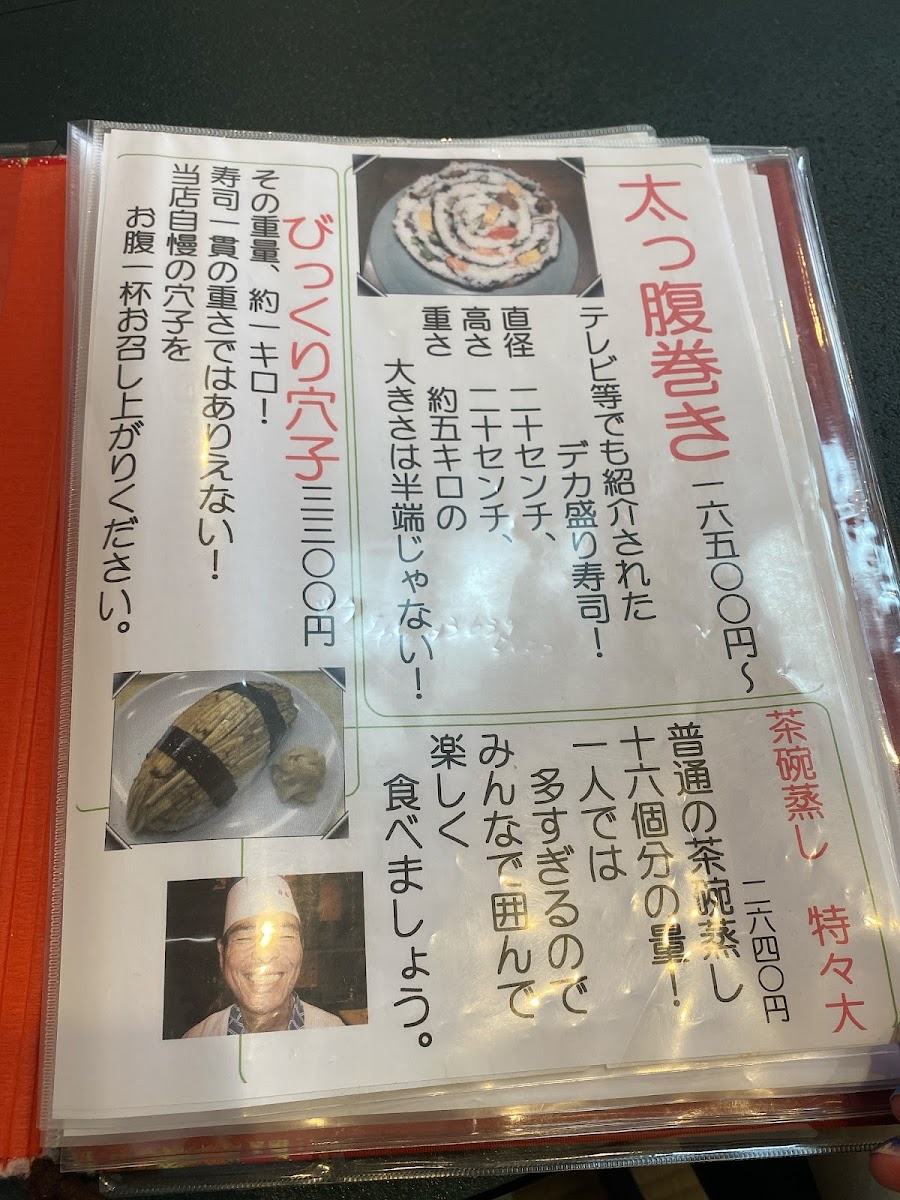 太っ腹巻き
一六五〇〇円～
テレビ等でも紹介された
デカ盛り寿司！
直径 二十センチ、
高さ 二十センチ、
重さ 約五キロの
大きさは半端じゃない！
びっくり穴子 三三〇〇円
その重量、約一キロ！
寿司一貫の重さではありえない！
当店自慢の穴子を
お腹一杯お召し上がりください。
茶碗蒸し 特々大
二六四〇円
普通の茶碗蒸し
十六個分の量！
一人では
多すぎるので
みんなで囲んで
楽しく
食べましょう。